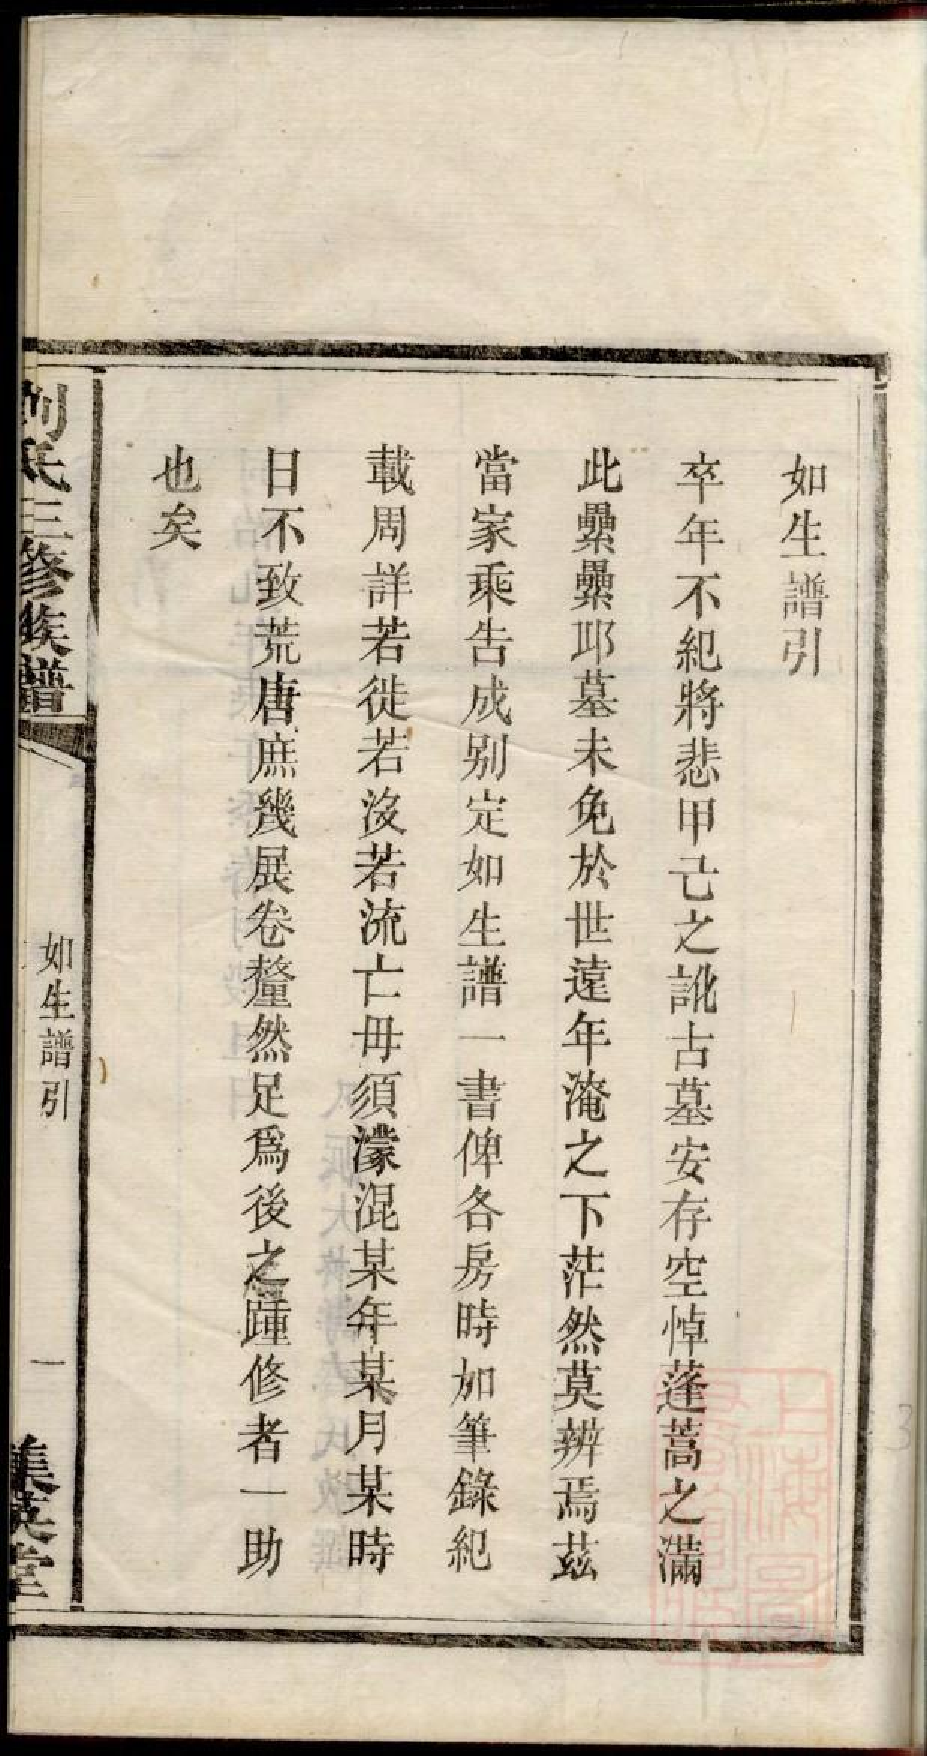 如生譜引
卒年不紀將悲甲己之訛古墓安存空悼蓬蒿之滿
此纍纍耶墓未免於世遠年淹之下茫然莫辨焉茲
當家乘告成别定如生譜一書俾各房時加筆錄紀
載周詳若徙若沒若流亡毋須濛混某年某月某時
日不致荒唐庶幾展卷釐然足爲後之踵修者一助
也矣
劉氏三修族譜
如生譜引
一
集英堂
上海圖